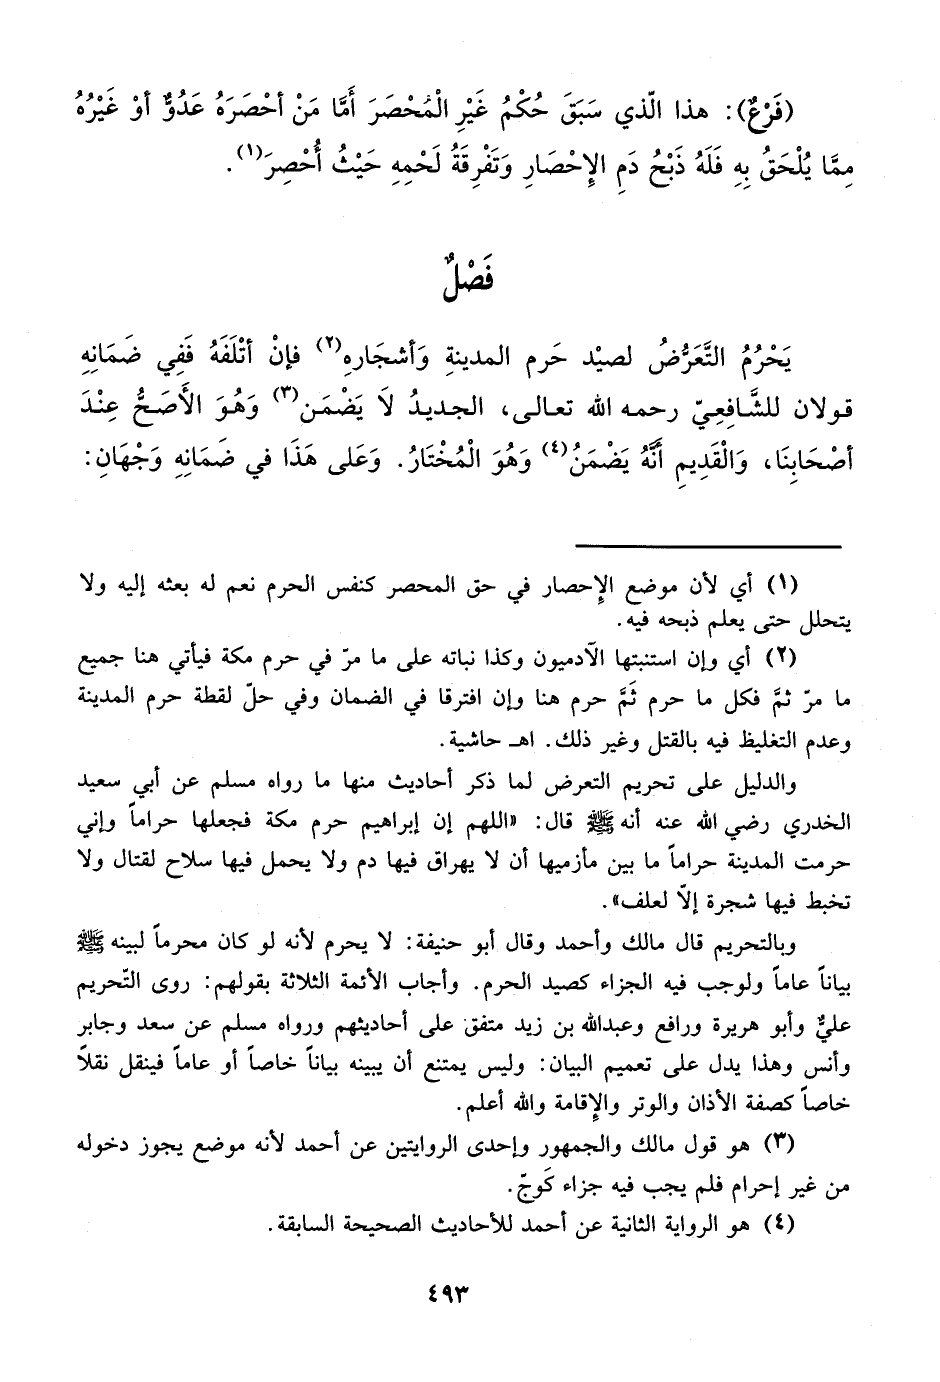 (فَرْعٌ): هذا الّذي سَبَقَ حُكْمُ غَيْرِ الْمُحْصَرَ أَمَّا مَنْ أحْصَرَهُ عَدُوٌّ أوْ غَيْرُهُ
مِمَّا يُلْحَقُ بِهِ فَلَهُ ذَبْحُ دَمِ الإِحْصَارِ وَتَفْرِقَةُ لَحْمِهِ حَيْثُ أُحْصِرَ(١).
فَصْلٌ
يَحْرُمُ التَّعَرُّضُ لصيْد حَرم المدينةِ وَأشجَاره(٢) فإنْ أتْلَفَهُ فَفِي ضَمَانِهِ
قولان للشَّافِعِيّ رحمه الله تعالى، الجديدُ لَا يَضْمَن(٣) وَهُوَ الأَصَحُّ عِنْدَ
أصْحَابِنَا، وَالْقَدِيمِ أَنَّهُ يَضْمَنُ(٤) وَهُوَ الْمُخْتَارُ. وَعَلى هَذَا في ضَمَانِهِ وَجْهَانِ:
(١) أي لأن موضع الإحصار في حق المحصر كنفس الحرم نعم له بعثه إليه ولا
يتحلل حتى يعلم ذبحه فيه.
(٢) أي وإن استنبتها الآدميون وكذا نباته على ما مرّ في حرم مكة فيأتي هنا جميع
ما مرّ ثمَّ فكل ما حرم ثَمَّ حرم هنا وإن افترقا في الضمان وفي حلّ لقطة حرم المدينة
وعدم التغليظ فيه بالقتل وغير ذلك. اهـ حاشية.
والدليل على تحريم التعرض لما ذكر أحاديث منها ما رواه مسلم عن أبي سعيد
الخدري رضي الله عنه أنه ﷺ قال: «اللهم إن إبراهيم حرم مكة فجعلها حراماً وإني
حرمت المدينة حراماً ما بين مأزميها أن لا يهراق فيها دم ولا يحمل فيها سلاح لقتال ولا
تخبط فيها شجرة إلّا لعلف».
وبالتحريم قال مالك وأحمد وقال أبو حنيفة: لا يحرم لأنه لو كان محرماً لبينه ﷺ
بياناً عاماً ولوجب فيه الجزاء كصيد الحرم. وأجاب الأئمة الثلاثة بقولهم: روى التّحريم
عليٌّ وأبو هريرة ورافع وعبدالله بن زيد متفق على أحاديثهم ورواه مسلم عن سعد وجابر
وأنس وهذا يدل على تعميم البيان: وليس يمتنع أن يبينه بياناً خاصاً أو عاماً فينقل نقلاً
خاصاً كصفة الأذان والوتر والإقامة والله أعلم.
(٣) هو قول مالك والجمهور وإحدى الروايتين عن أحمد لأنه موضع يجوز دخوله
من غير إحرام فلم يجب فيه جزاء كَوجّ.
(٤) هو الرواية الثانية عن أحمد للأحاديث الصحيحة السابقة.
٤٩٣